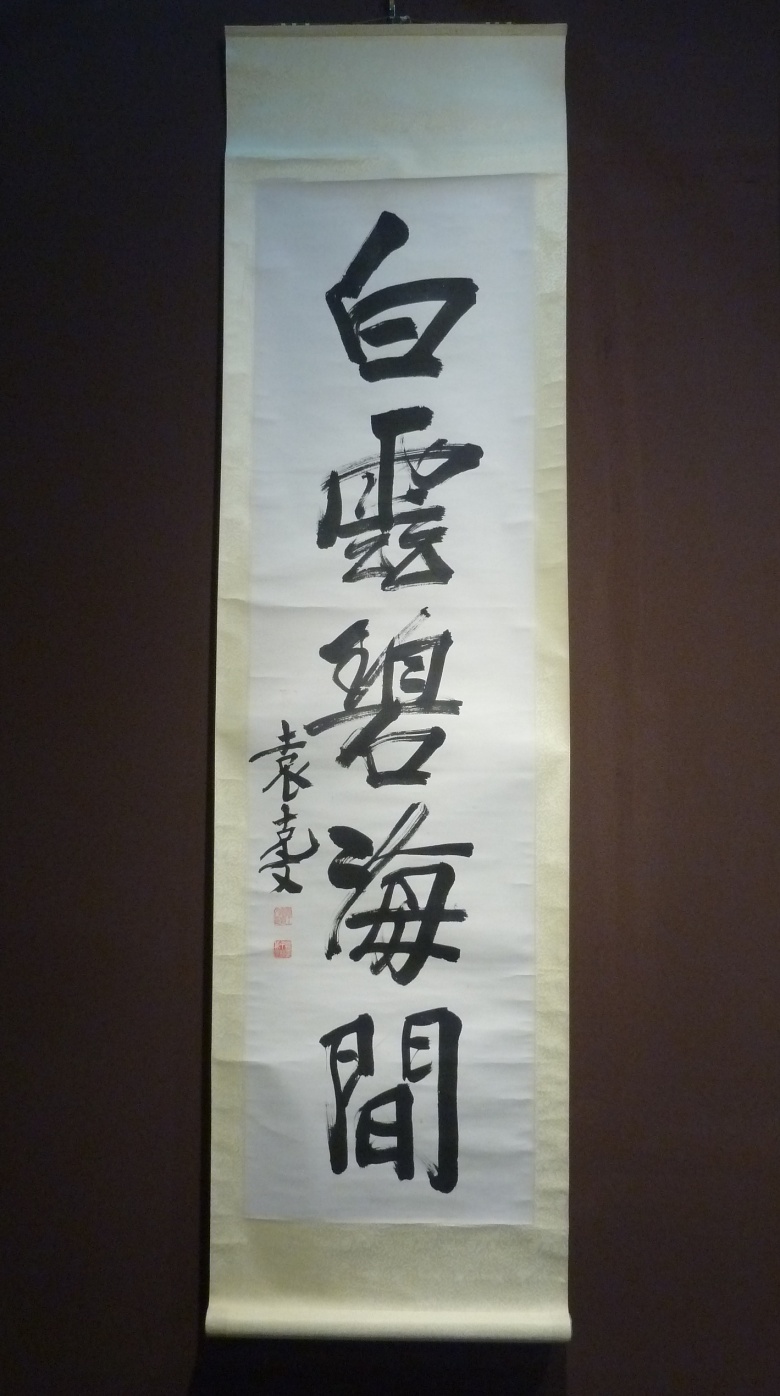 白雲碧海間
袁克文